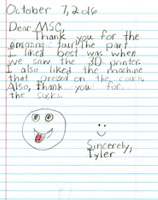 October 7, 2016
Dear MSC,
Thank you for the
amazing tour. The part
I liked best was when
we saw the 3D printer.
I also liked the machine
that pressed on the
Also, thank you for
the socks.
Sincerely,
Tyler